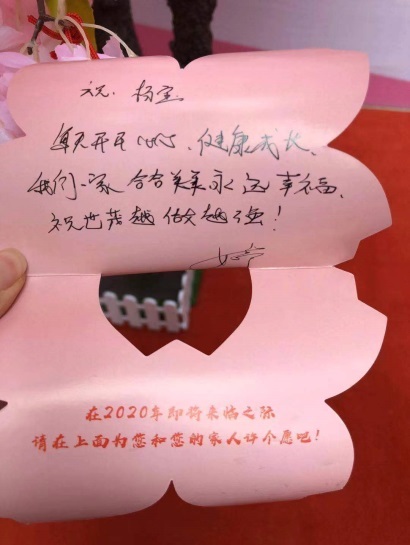 祝：杨宝
每天开开心心、健康成长、
我们一家 合合美美永远幸福，
祝世茂越做越强！
在2020年即将来临之际
请在上面为您和您的家人许个愿吧！